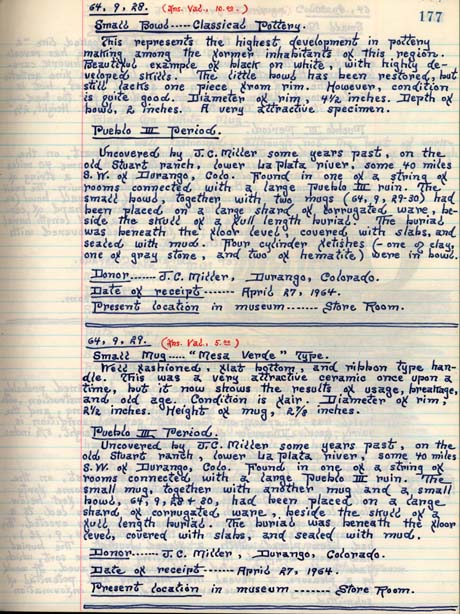 64, 9, 28. (Ins. Val., 10.00.)
177
Small Bowl.....Classical Pottery.
This represents the highest development in pottery
making among the former inhabitants of this region.
Beautiful example of black on white, with highly de-
veloped skills. The little bowl has been restored, but
still lacks one piece from rim. However, condition
is quite good. Diameter of rim, 4½ inches. Depth of
bowl, 2 inches. A very attractive specimen.
Pueblo III Period.
Uncovered by J.C. Miller some years past, on the
old Stuart ranch, lower La Plata river, some 40 miles
S.W. of Durango, Colo. Found in one of a string of
rooms connected with a large Pueblo III ruin. The
small bowl, together with two mugs (64, 9, 29-30) had
been placed on a large shard of corrugated ware, be-
side the skull of a full length burial. The burial
was beneath the floor level, covered with slabs, and
sealed with mud. Four cylinder fetishes (-one of clay,
one of gray stone, and two of hematite) were in bowl.
Donor.......J.C. Miller, Durango, Colorado.
Date of receipt------- April 27, 1964.
Present location in museum ------- Store Room.
64, 9, 29. (Ins. Val., 5.00)
Small Mug....."Mesa Verde" Type.
Well fashioned, flat bottom, and ribbon type han-
dle. This was a very attractive ceramic once upon a
time, but it now shows the results of usage, breakage,
and old age. Condition is fair. Diameter of rim,
2½ inches. Height of mug, 2⅞ inches.
Pueblo III Period.
Uncovered by J.C. Miller some years past, on the
old Stuart ranch, lower La Plata river, some 40 miles
S.W. of Durango, Colo. Found in one of a string of
rooms connected with a large Pueblo III ruin. The
small mug, together with another mug and a small
bowl, 64, 9, 28+30, had been placed on a large
shard of corrugated ware, beside the skull of a
full length burial. The burial was beneath the floor
level, covered with slabs, and sealed with mud.
Donor------- J.C. Miller, Durango, Colorado.
Date of receipt------ April 27, 1964.
Present location in museum ------- Store Room.